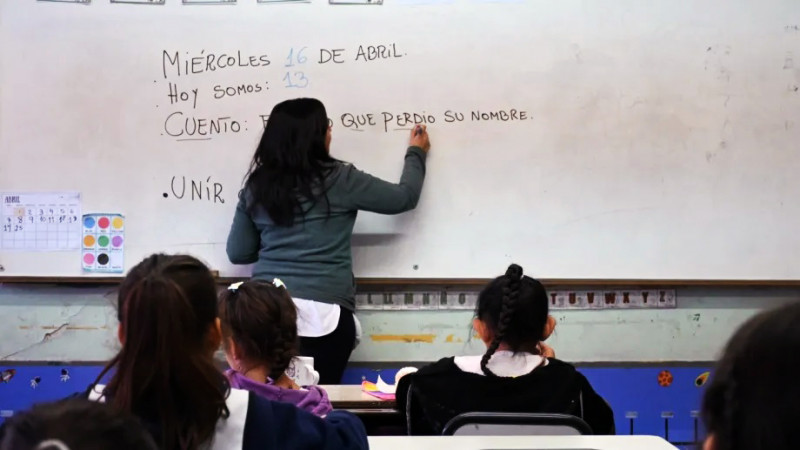 MIÉRCOLES 16 DE ABRIL.
HOY SOMOS: 13
CUENTO: QUE PERDIO SU NOMBRE.
• UNÍR
ABRIL
T U V W X Y Z